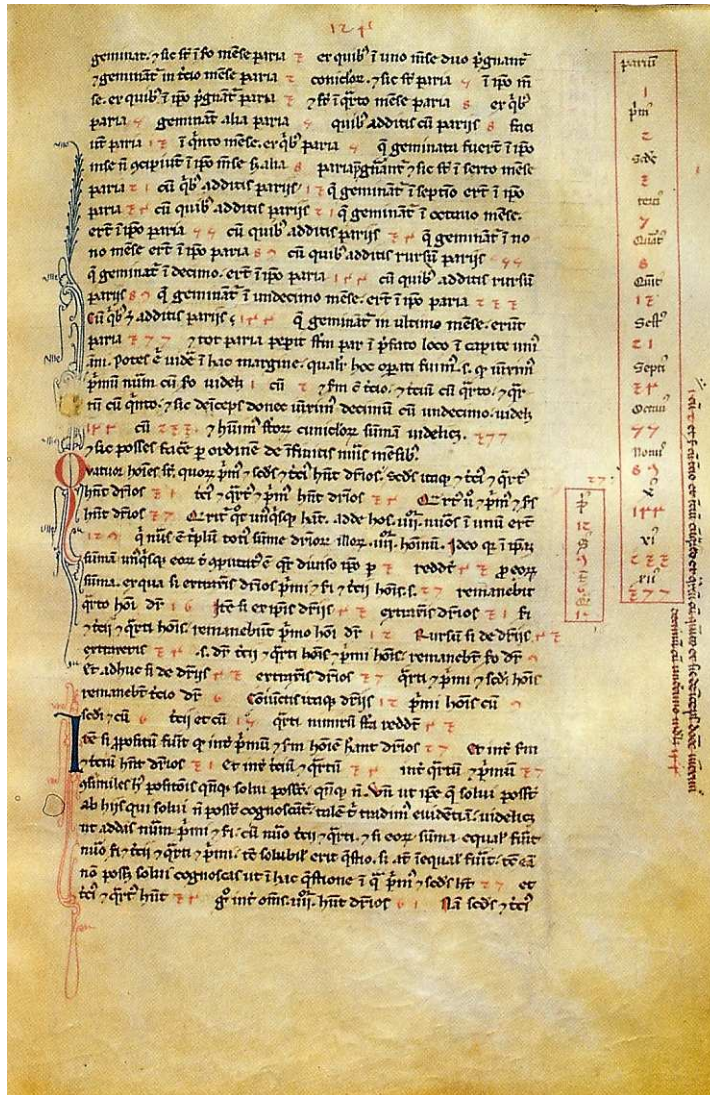 geminat. ⁊ sic st̄ ī fo mēse paria 3 ex quib⁹ ī uno mēse duo p̄gnant̄
⁊ geminat̄ in t̄cio mēse paria 2 coniclor. ⁊ sic st̄ paria 5 ī ip̄o m̄
se. ex quib⁹ ī ip̄o p̄gnat̄ paria 3 ⁊ st̄ ī q̄rto mēse paria 8 ex q̄b⁹
paria 5 geminat̄ alia paria 5 quib⁹ additis cū parijs 8 faci
ūt paria 13 ī q̄nto mēse. ex q̄b⁹ paria 5 q̄ geminata fuert̄ ī ip̄o
mēse n̄ ɔcipiūt ī ip̄o mēse s; alia 8 paria p̄gnāt̄ ⁊ sic st̄ ī sexto mēse
paria 21 cū q̄b⁹ additis parijs 13 q̄ geminat̄ ī septīo ert̄ ī ip̄o
paria 34 cū quib⁹ additis parijs 21 q̄ geminat̄ ī octauo mēse.
ert̄ ī ip̄o paria 55 cū quib⁹ additis parijs 34 q̄ geminat̄ ī no
no mēse ert̄ ī ip̄o paria 89 cū quib⁹ additis rursū parijs 55
q̄ geminat̄ ī decimo. ert̄ ī ip̄o paria 144 cū quib⁹ additis rursū
parijs 89 q̄ geminat̄ ī undecimo mēse. ert̄ ī ip̄o paria 233
Cū q̄b⁹ ⁊ additis parijs 144 q̄ geminat̄ in ultimo mēse. erūt
paria 377 ⁊ tot paria pepit st̄m par ī p̄fato loco ī capite uni⁹
āni. Potes ē uidē ī hac margine. qualr̄ hoc opati fuim⁹. s. q̄ iūxim⁹
p̄mū nūm cū fo uidelꝫ 1 cū 2 ⁊ fm̄ c̄ t̄cio. ⁊ t̄ciū cū q̄rto. ⁊ q̄r
tū cū q̄nto. ⁊ sic deīceps donec iūxim⁹ decimū cū undecimo. uidelꝫ
144 cū 233 ⁊ hūim⁹ st̄or cuniclor sūmā uidelicꝫ 377
⁊ sic posses facē p ordinē de īfinitis nūis mēsib⁹.
Quatuor hoīes st̄. quor p̄m⁹ ⁊ scd̄s ⁊ t̄ci⁹ hn̄t dr̄ios. Scd̄s itaq ⁊ t̄ci⁹ ⁊ q̄rt⁹
hn̄t dr̄ios 31 t̄ci⁹ ⁊ q̄rt⁹ ⁊ p̄m⁹ hn̄t dr̄ios 34 Q̄rt⁹ ū ⁊ p̄m⁹ ⁊ fs
hn̄t dr̄ios 37 Q̄rit̄ q̄t unq̄sq hāt. adde hos .iiii. nūos ī unū ert̄
129 q̄ nūs ē t̄plū toti⁹ sūme dr̄ior illor .iiii. hoīnū. Ideo q̄ ī ip̄a
sūma unq̄sq eor t̄ ɔputat⁹ ē q̄re diuiso ip̄o p 3 reddt̄ 43 p eor
sūma. ex qua si extraxis dr̄ios p̄mi ⁊ fi ⁊ t̄cij hoīs. s. 27 remanebūt
q̄rto hoī dr̄ 16 Itē si ex ip̄is dr̄ijs 43 extraxis dr̄ios 31 fi
⁊ t̄cij ⁊ q̄rti hoīs. remanebūt p̄mo hoī dr̄ 12 Rursū si de dr̄ijs 43
extraxeris 34 .s. dr̄ t̄cij ⁊ q̄rti hoīs ⁊ p̄mi hoīs. remanebt̄ fo dr̄ 9
Et adhuc si de dr̄ijs 43 extraxis dr̄ios 37 q̄rti ⁊ p̄mi ⁊ scdi hoīs
remanebt̄ t̄cio dr̄ 6 Coniūctis itaq dr̄ijs 12 p̄mi hoīs cū 9
scdi ⁊ cū 6 t̄cij et cū 16 q̄rti nimirū st̄a reddt̄ 43
Itē si ppositū fuit̄ q̄ int̄ p̄mū ⁊ fm̄ hoīē hāt dr̄ios 27 Et int̄ fm̄
⁊ t̄ciū hn̄t dr̄ios 31 Et int̄ t̄ciū ⁊ q̄rtū 34 int̄ q̄rtū ⁊ p̄mū 37
ɔsimiles h⁹ positoīs q̄nq solui post̄. q̄nq n̄. Vn̄ ut ip̄e q̄ solui post̄
ab hijs qui solui n̄ post̄ cognoscāt̄. tale t̄ tradim⁹ euidētiā. uidelicꝫ
ut addas nūm p̄mi ⁊ fi. cū nūo t̄cij ⁊ q̄rti. ⁊ si eor sūma equał fuit̄
nūo fi ⁊ t̄cij ⁊ q̄rti ⁊ p̄mi. t̄c solubił erit q̄stio. si at̄ īequał fuit̄. t̄c eā
nō posse solui cognoscas ut ī hac q̄stione ī q̄ p̄m⁹ ⁊ scd̄s hn̄t 27 et
t̄ci⁹ ⁊ q̄rt⁹ hn̄t 34 g̊ int̄ om̄s .iiii. hn̄t dr̄ios 61 Nā scd̄s ⁊ t̄ci⁹
pariū
1
p̄m⁹
2
Scds
3
terci⁹
5
Quart⁹
8
Quīt⁹
13
Sest⁹
21
Septī⁹
34
Octau⁹
55
Non⁹
89
x⁹
144
xi⁹
233
xii⁹
377